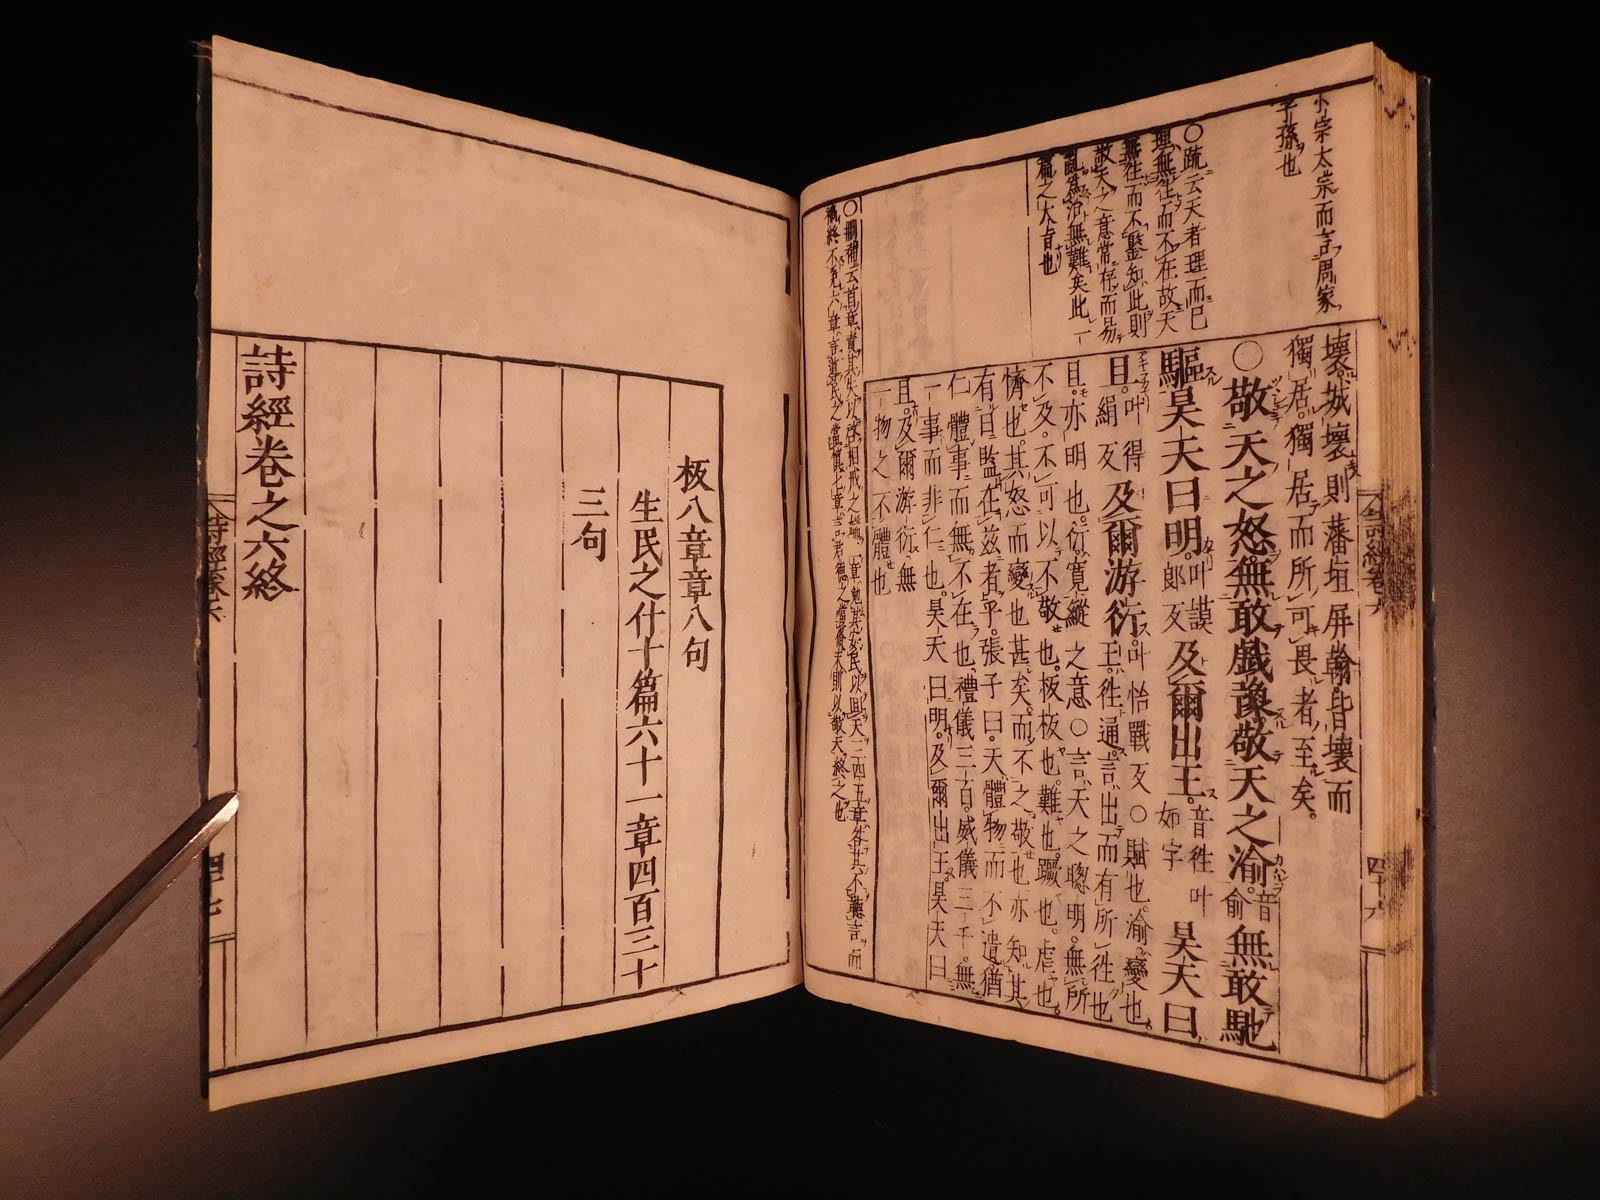 小宗太宗而言周家
子孫也
○疏云天者理而已
理無往而不在故天
無往而不鑒知此則
敬天之意常存而易
亂爲治無難矣此一
篇之大旨也
壞。城壞則藩垣屏翰皆壞而
獨居。獨居而所可畏者至矣。
○敬天之怒無敢戲豫敬天之渝音俞無敢馳
驅昊天曰明叶謨郎反及爾出王音往叶如字昊天曰
旦叶得絹反及爾游衍叶怡戰反○賦也。渝。變也。
王。往通。言出而有所往也
旦。亦明也。衍。寬縱之意○言天之聰明。無所
不及。不可以不敬也。板板也。難也。蹶也。虐也。
憯也。其怒而變也甚矣。而不之敬也。亦知其
有日監在茲者乎。張子曰。天體物而不遺。猶
仁體事而無不在也。禮儀三百。威儀三千。無
一事而非仁也。昊天曰明。及爾出王。昊天曰
旦。及爾游衍。無
一物之不體也
板八章章八句
生民之什十篇六十一章四百三十
三句
詩經卷之六終
詩經卷六
四十七